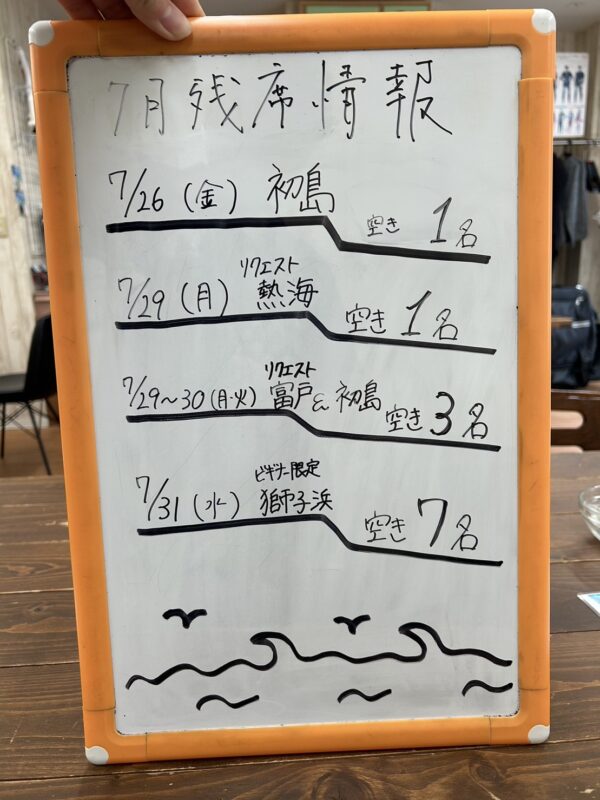 7月残席情報
7/26(金) 初島 空き 1名
リクエスト
7/29(月) 熱海 空き 1名
リクエスト
7/29〜30(月・火) 富戸&初島 空き 3名
ビギナー限定
7/31(水) 獅子浜 空き 7名